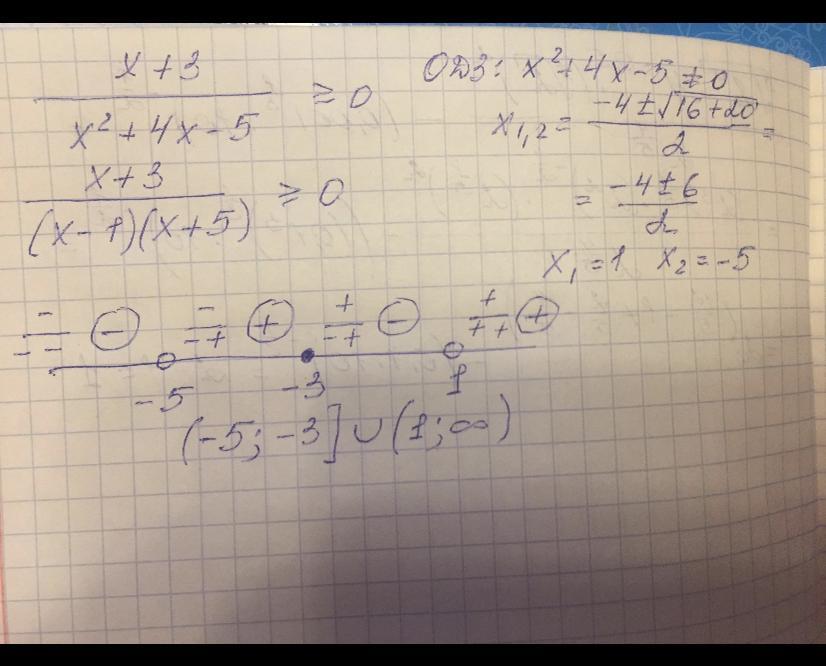 x+3 / x²+4x-5 ≥ 0
ОДЗ: x²+4x-5 ≠ 0
x₁,₂ = (-4±√16+20) / 2 =
= (-4±6) / 2
x₁ = 1 x₂ = -5
x+3 / (x-1)(x+5) ≥ 0
- / - - ⊖ - / - + ⊕ + / - + ⊖ + / + + ⊕
-5 -3 1
(-5; -3] ∪ (1; ∞)